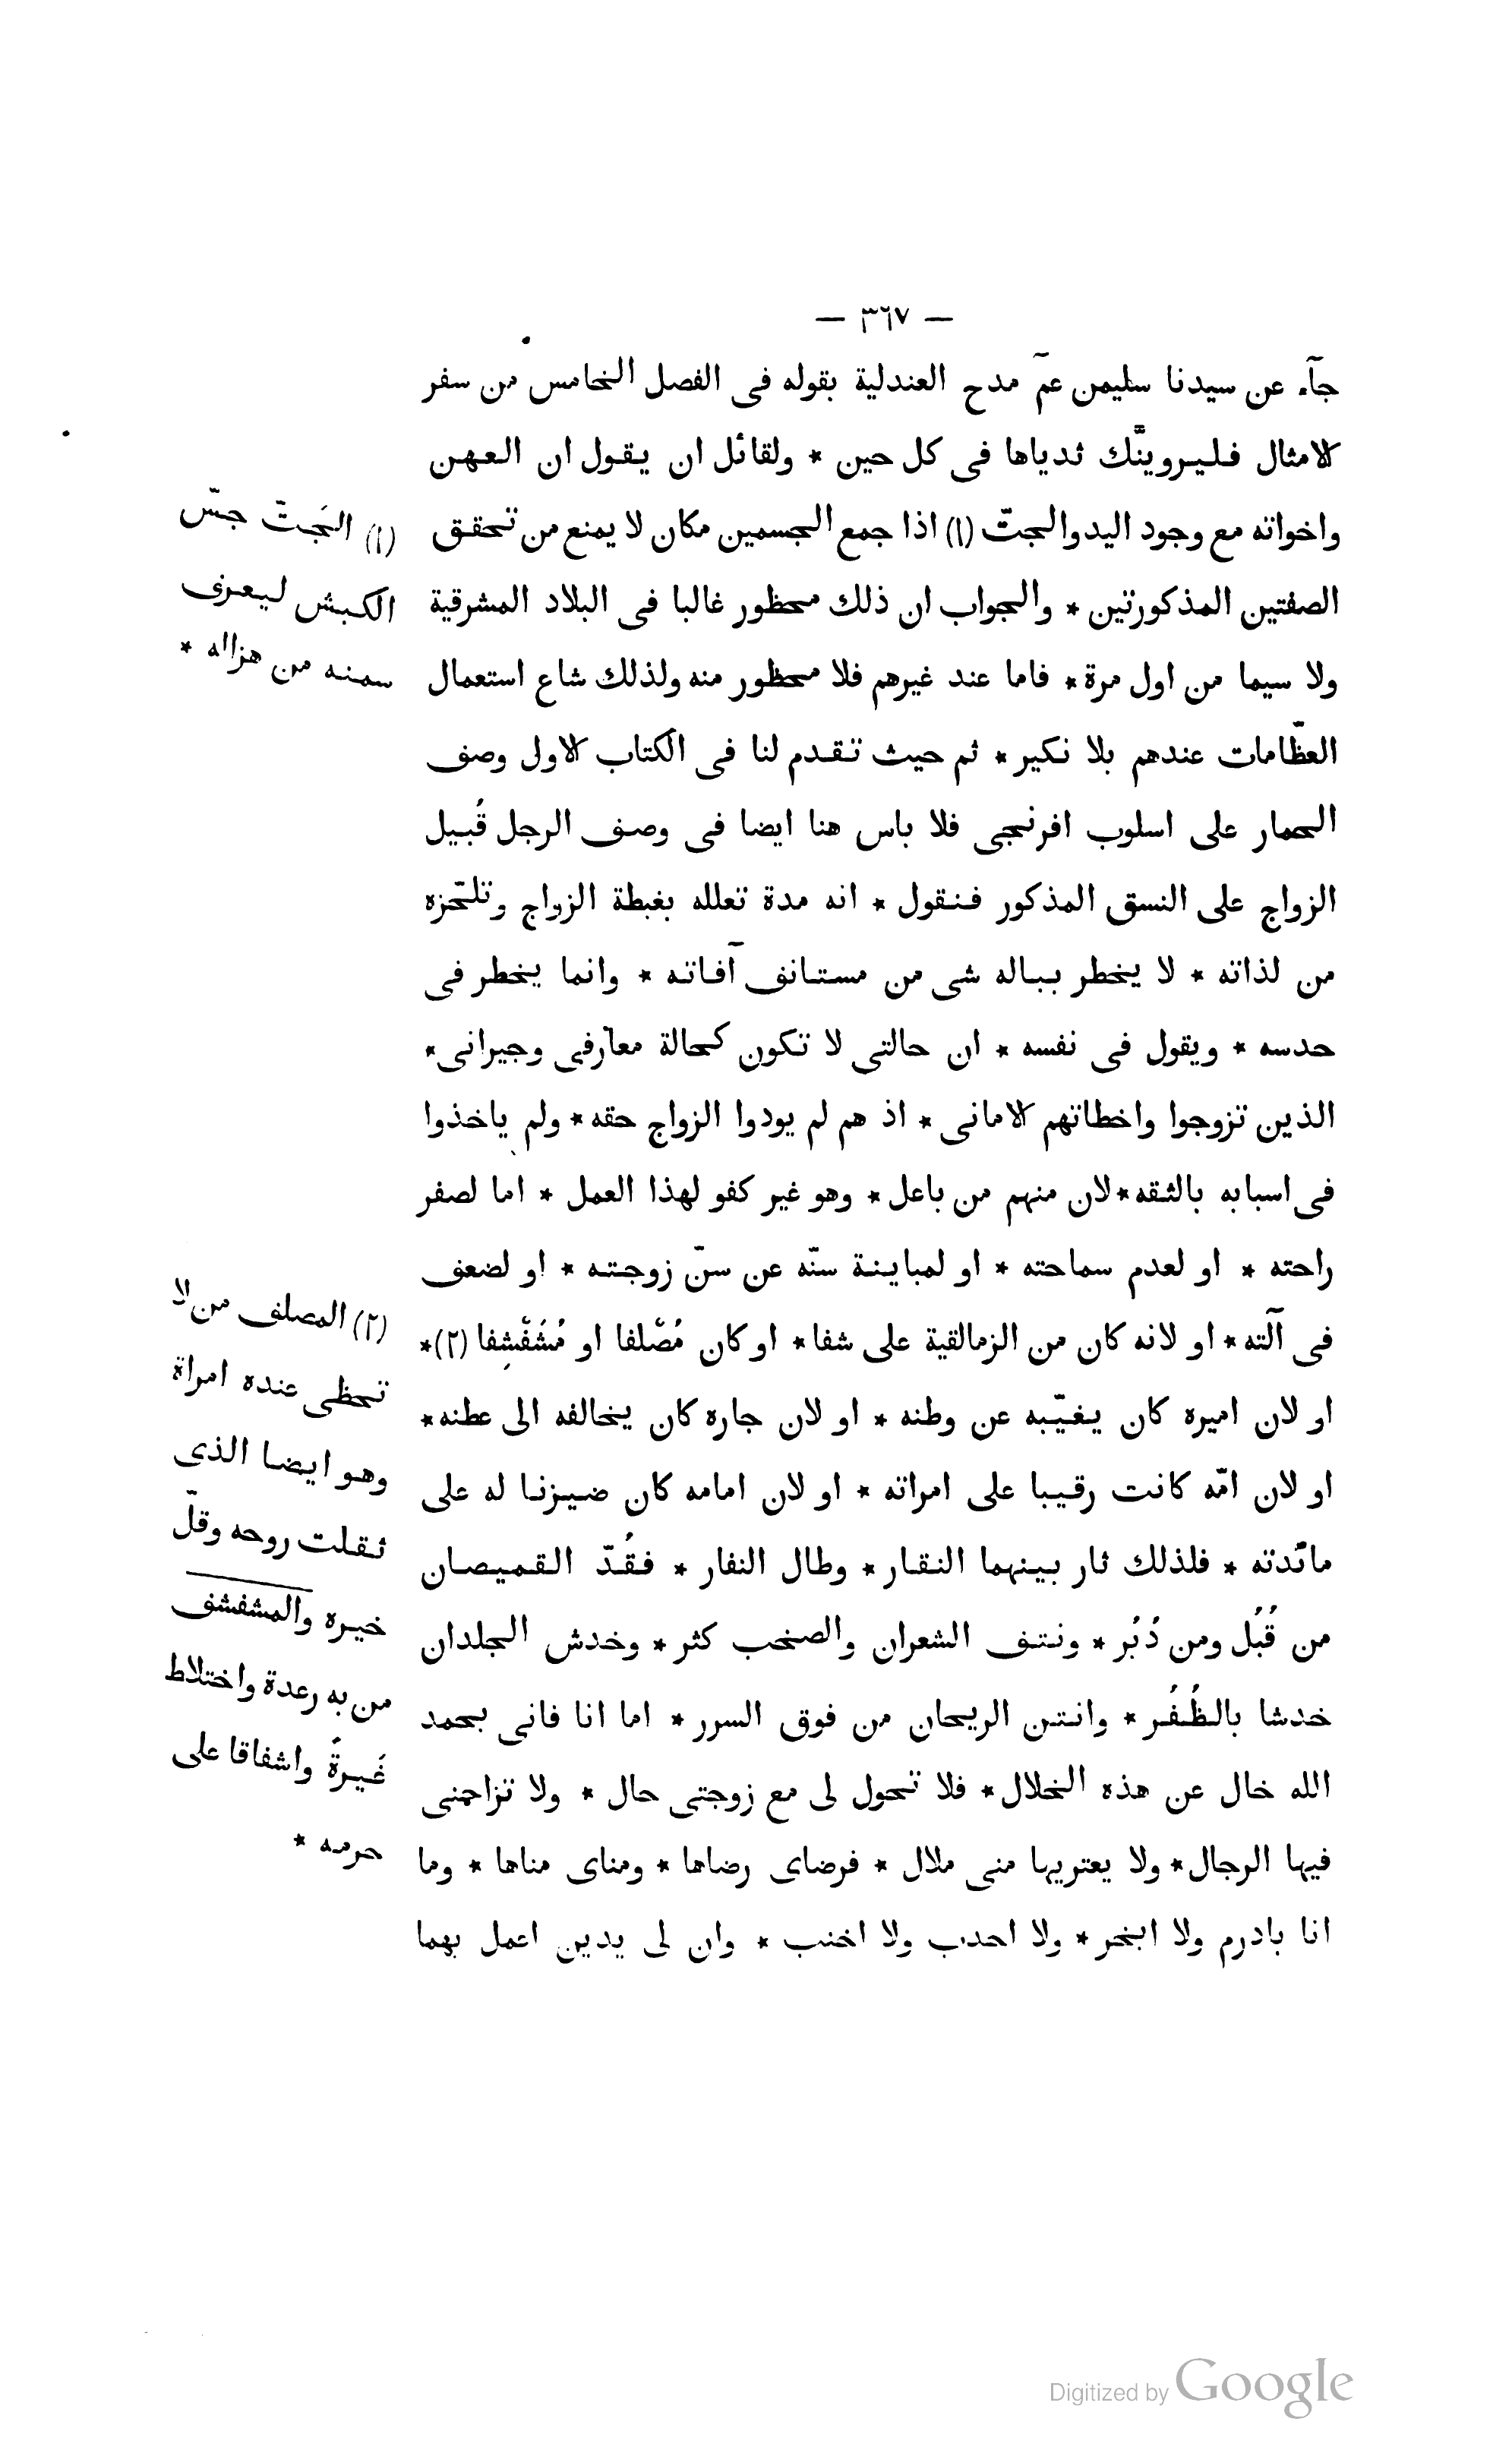 — ٣٦٧ —
جآء عن سيدنا سليمن عمّ مدح العندلية بقوله فى الفصل الخامس من سفر
الامثال فليروينّك ثدياها فى كل حين * ولقائل ان يقول ان العهن
واخواته مع وجود اليد والجتّ (١) اذا جمع الجسمين مكان لا يمنع من تحقق
الصفتين المذكورتين * والجواب ان ذلك محظور غالبا فى البلاد المشرقية
ولا سيما من اول مرة * فاما عند غيرهم فلا محظور منه ولذلك شاع استعمال
العظّامات عندهم بلا نكير * ثم حيث تقدم لنا فى الكتاب الاول وصف
الحمار على اسلوب افرنجى فلا باس هنا ايضا فى وصف الرجل قُبيل
الزواج على النسق المذكور فنقول * انه مدة تعلله بغبطة الزواج وتلحّزه
من لذاته * لا يخطر بباله شى من مستانف آفاته * وانما يخطر فى
حدسه * ويقول فى نفسه * ان حالتى لا تكون كحالة معارفى وجيرانى *
الذين تزوجوا واخطاتهم الامانى * اذ هم لم يودوا الزواج حقه * ولم ياخذوا
فى اسبابه بالثقه * لان منهم من باعل * وهو غير كفو لهذا العمل * اما لصفر
راحته * او لعدم سماحته * او لمباينة سنّه عن سنّ زوجته * او لضعف
فى آلته * او لانه كان من الزمالقية على شفا * او كان مُصْلفا او مُشَفْشِفا (٢) *
او لان اميره كان يغيّبه عن وطنه * او لان جاره كان يخالفه الى عطنه *
او لان امّه كانت رقيبا على امراته * او لان امامه كان ضيزنا له على
مائدته * فلذلك ثار بينهما النقار * وطال النفار * فقُدّ القميصان
من قُبُل ومن دُبُر * ونتف الشعران والصخب كثر * وخدش الجلدان
خدشا بالظُفُر * وانتن الريحان من فوق السرر * اما انا فانى بحمد
الله خال عن هذه الخلال * فلا تحول لى مع زوجتى حال * ولا تزاحمنى
فيها الرجال * ولا يعتريها منى ملال * فرضاى رضاها * ومناى مناها * وما
انا بادرم ولا ابخر * ولا احدب ولا اخنب * وان لى يدين اعمل بهما
(١) الجَتّ جسّ
الكبش ليعرف
سمنه من هزاله *
(٢) المصلف من لا
تحظى عنده امراة
وهو ايضا الذى
ثقلت روحه وقلّ
خيره والمشفشف
من به رعدة واختلاط
غَيرةً واشفاقا على
حرمه *
Digitized by Google